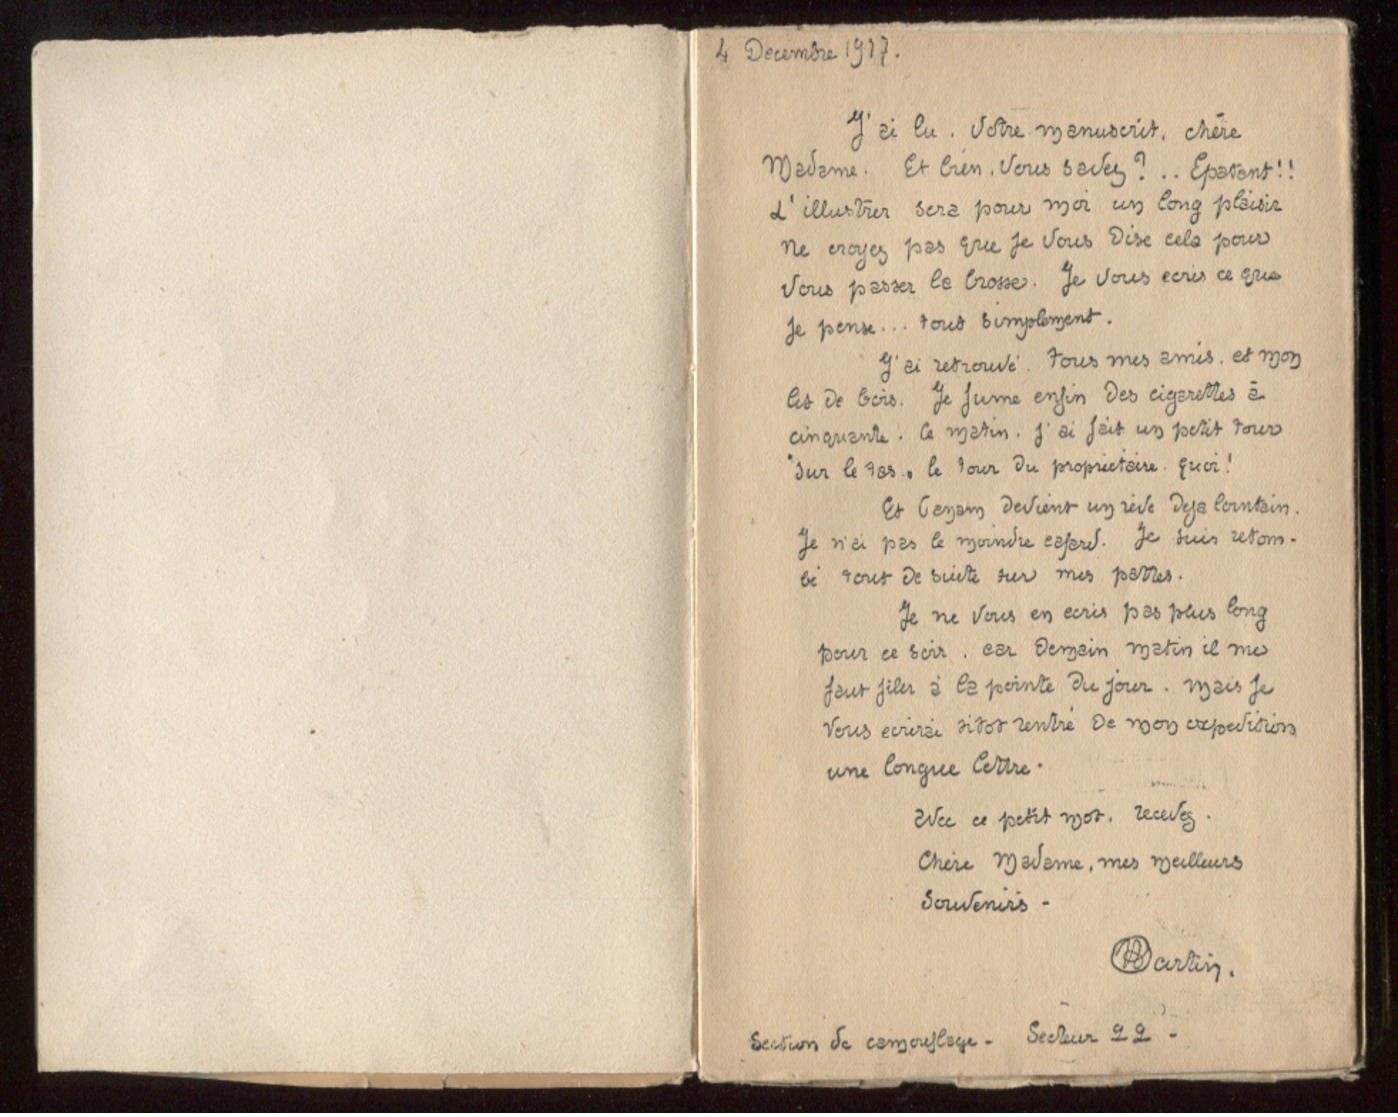 4 Decembre 1917.
J'ai lu. Votre manuscrit. chère
Madame. Et bien, vous savez ? .. Epatant !!
L'illustrer sera pour moi un long plaisir
ne croyez pas que je vous dise cela pour
vous passer la brosse. Je vous ecris ce que
je pense... tout simplement.
J'ai retrouvé. tous mes amis. et mon
lit de bois. Je fume enfin des cigarettes à
cinquante. Ce matin. j'ai fait un petit tour
"sur le tas., le tour du proprietaire. quoi !
Et devient un rêve deja lointain.
Je n'ai pas le moindre cafard. Je suis retom-
bé tout de suite sur mes pattes.
Je ne vous en ecris pas plus long
pour ce soir. car demain matin il me
faut filer à la pointe du jour. mais je
vous ecrirai sitot rentré de mon expedition
une longue lettre.
avec ce petit mot. recevez.
Chère Madame, mes meilleurs
souvenirs -
Martin.
Section de camouflage - Secteur 22 -